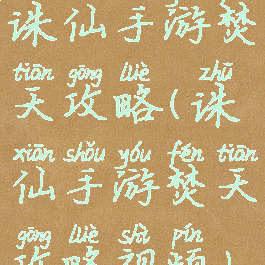 诛仙手游焚
tiān gōng lüè zhū
天攻略(诛
xiān shǒu yóu fén tiān
仙手游焚天
gōng lüè shì pín
攻略视频)